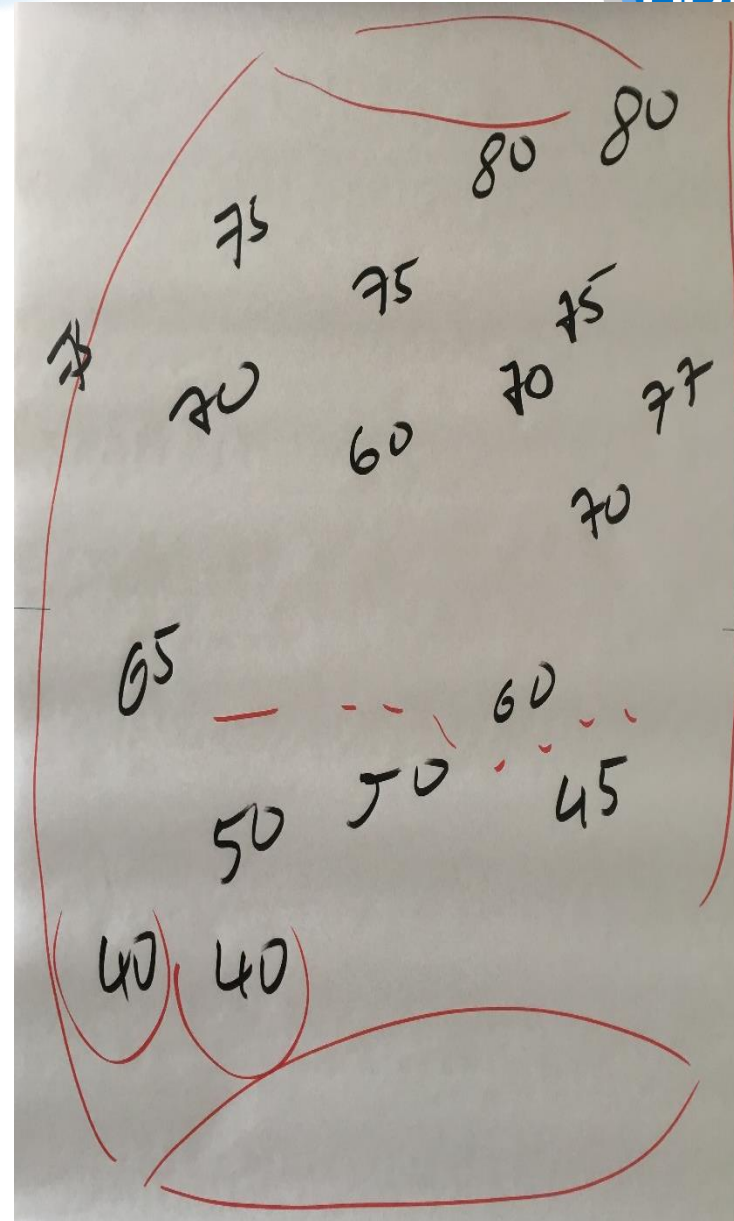 80 80
75
75 75
70 70 77
60
70
65
60
50 45
50
40 40